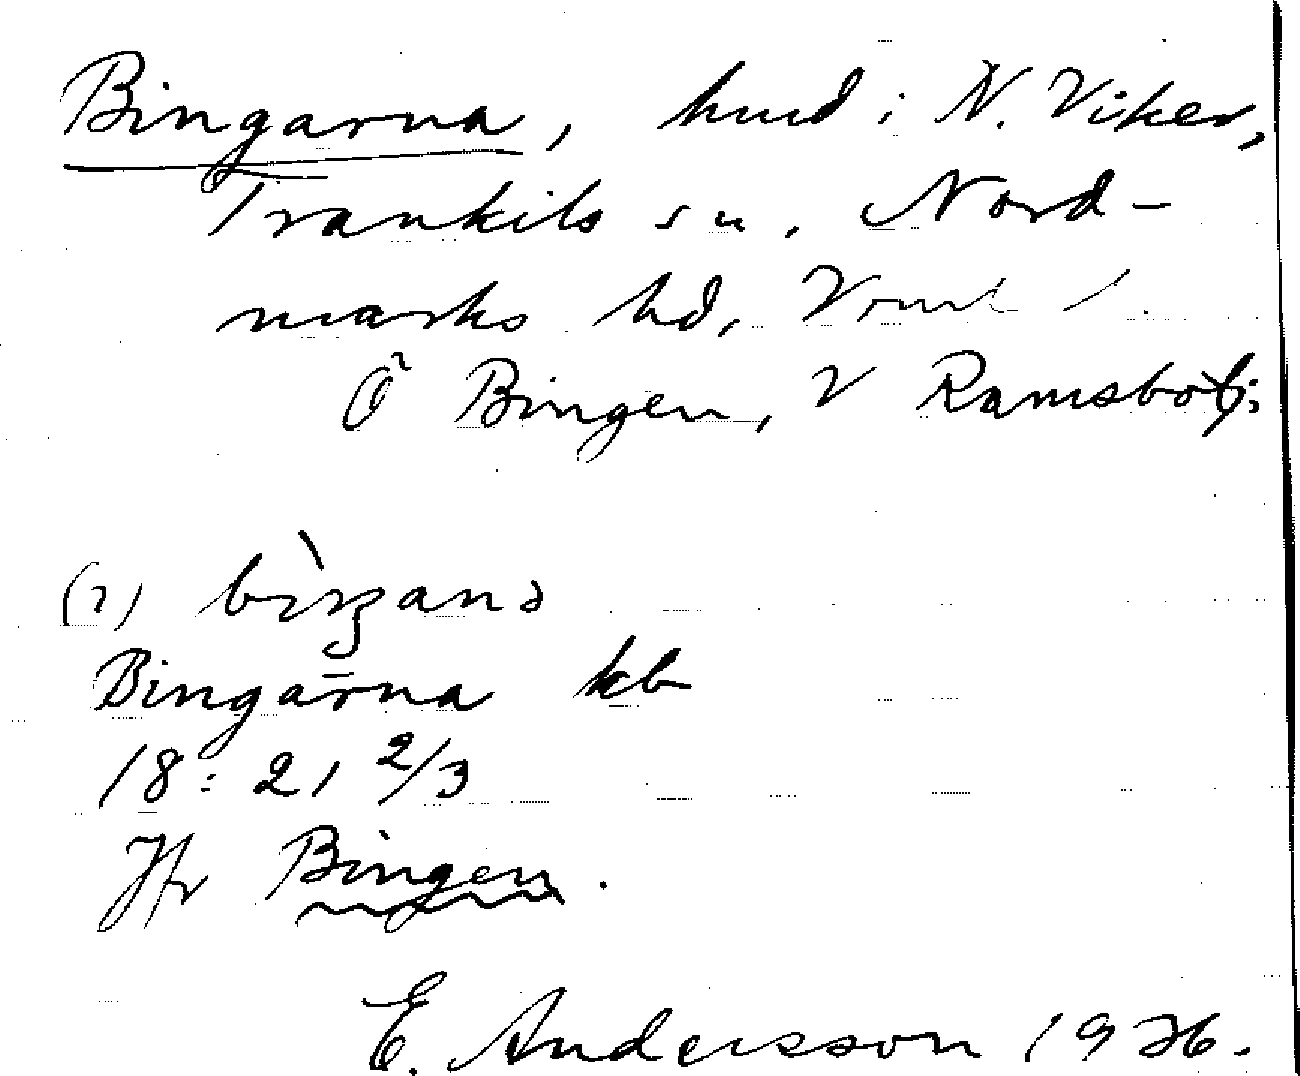 Bingarna, hmd i N. Viker,
Trankils sn, Nord-
marks hd, Vrml.
Ö Bingen, V Ramsbol;
(1) bìŋana
Bingarna kb
18:21 2/3
Jfr Bingen.
E. Andersson 1926.